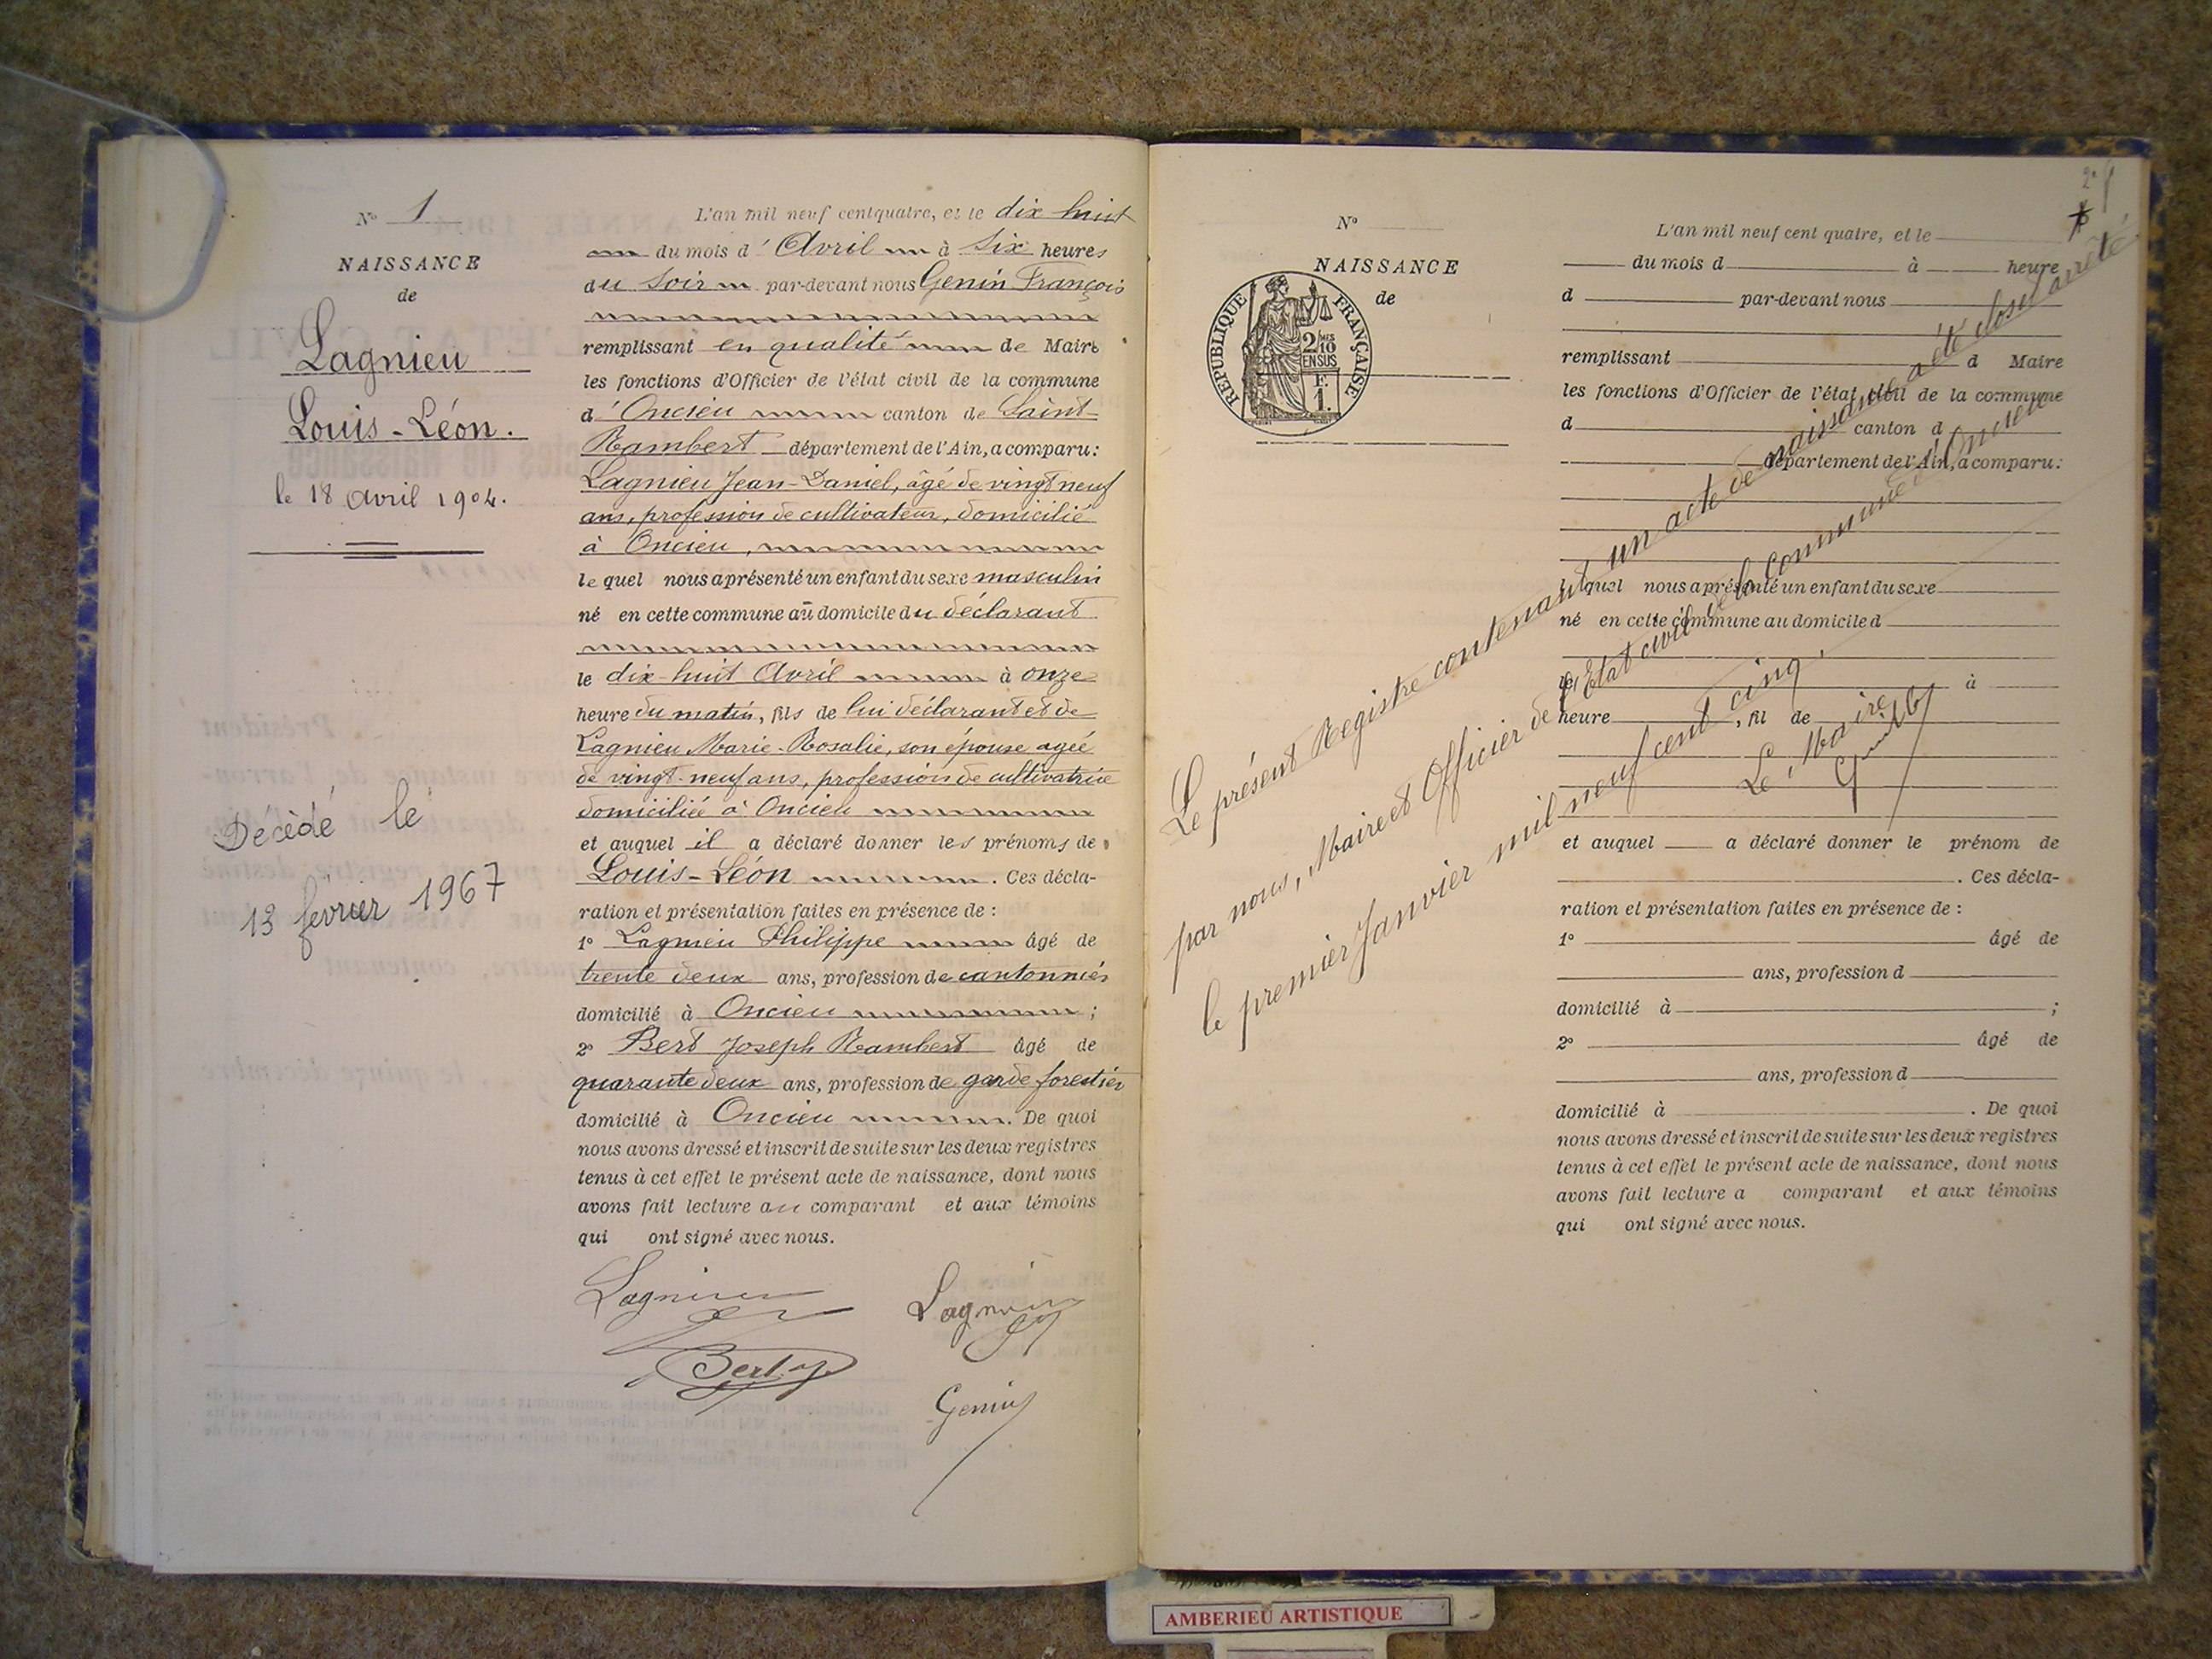 N° 1
NAISSANCE
de
Lagnieu
Louis-Léon.
le 18 avril 1904.
Décédé le
13 février 1967
L'an mil neuf cent quatre, et le dix huit
du mois d'Avril à six heures
du soir par-devant nous Genin François
remplissant en qualité de Maire
les fonctions d'Officier de l'état civil de la commune
d'Oncieu canton de Saint-
Rambert département de l'Ain, a comparu:
Lagnieu Jean-Daniel, âgé de vingt neuf
ans, profession de cultivateur, domicilié
à Oncieu,
lequel nous a présenté un enfant du sexe masculin
né en cette commune au domicile du déclarant
le dix-huit Avril à onze
heure du matin, fils de lui déclarant et de
Lagnieu Marie-Rosalie, son épouse agéé
de vingt-neuf ans, profession de cultivatrice
domiciliée à Oncieu
et auquel il a déclaré donner les prénoms de
Louis-Léon. Ces décla-
ration et présentation faites en présence de :
1° Lagnieu Philippe âgé de
trente deux ans, profession de cantonnier
domicilié à Oncieu ;
2° Bert Joseph Rambert âgé de
quarante deux ans, profession de garde forestier
domicilié à Oncieu. De quoi
nous avons dressé et inscrit de suite sur les deux registres
tenus à cet effet le présent acte de naissance, dont nous
avons fait lecture au comparant et aux témoins
qui ont signé avec nous.
Lagnieu Lagnieu
Bert
Genin
N°
NAISSANCE
de
REPUBLIQUE FRANÇAISE
2/10
EN SUS
F.
1.
L'an mil neuf cent quatre, et le
du mois d à heure
d par-devant nous
remplissant d Maire
les fonctions d'Officier de l'état civil de la commune
d canton d
département de l'Ain, a comparu:
lequel nous a présenté un enfant du sexe
né en cette commune au domicile d
le à
heure, fil de
et auquel a déclaré donner le prénom de
. Ces décla-
ration et présentation faites en présence de :
1° âgé de
ans, profession d
domicilié à ;
2° âgé de
ans, profession d
domicilié à . De quoi
nous avons dressé et inscrit de suite sur les deux registres
tenus à cet effet le présent acte de naissance, dont nous
avons fait lecture a comparant et aux témoins
qui ont signé avec nous.
Le présent Registre contenant un acte de naissance a été clos et arrêté
par nous, Maire et Officier de l'Etat civil de la commune d'Oncieu
le premier Janvier mil neuf cent cinq.
Le Maire
AMBERIEU ARTISTIQUE